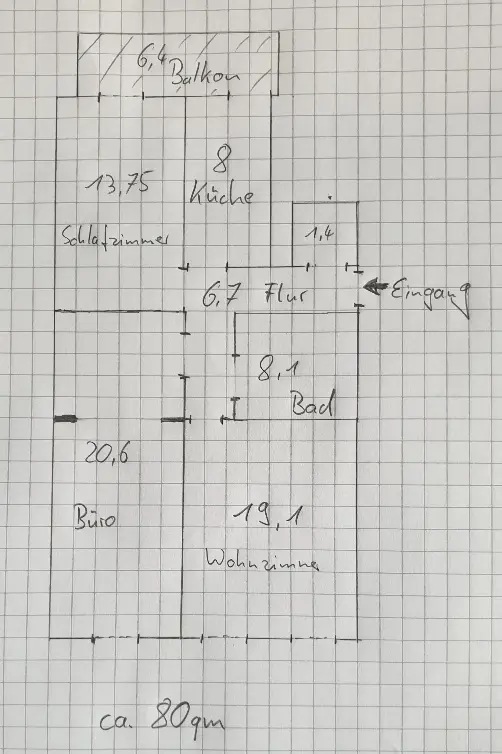 6,4
Balkon
13,75
8
Küche
Schlafzimmer
1,4
6,7 Flur
Eingang
8,1
Bad
20,6
Büro
19,1
Wohnzimmer
ca. 80qm